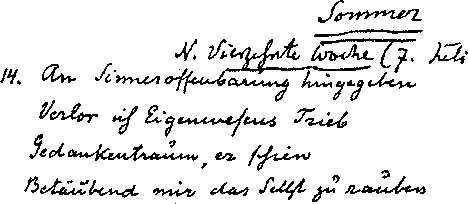 Sommer
N. Vierzehnte Woche (7. Juli
14. An Sinnesoffenbarung hingegeben
Verlor ich Eigenwesens Trieb
Gedankentraum, er schien
Betäubend mir das Selbst zu rauben